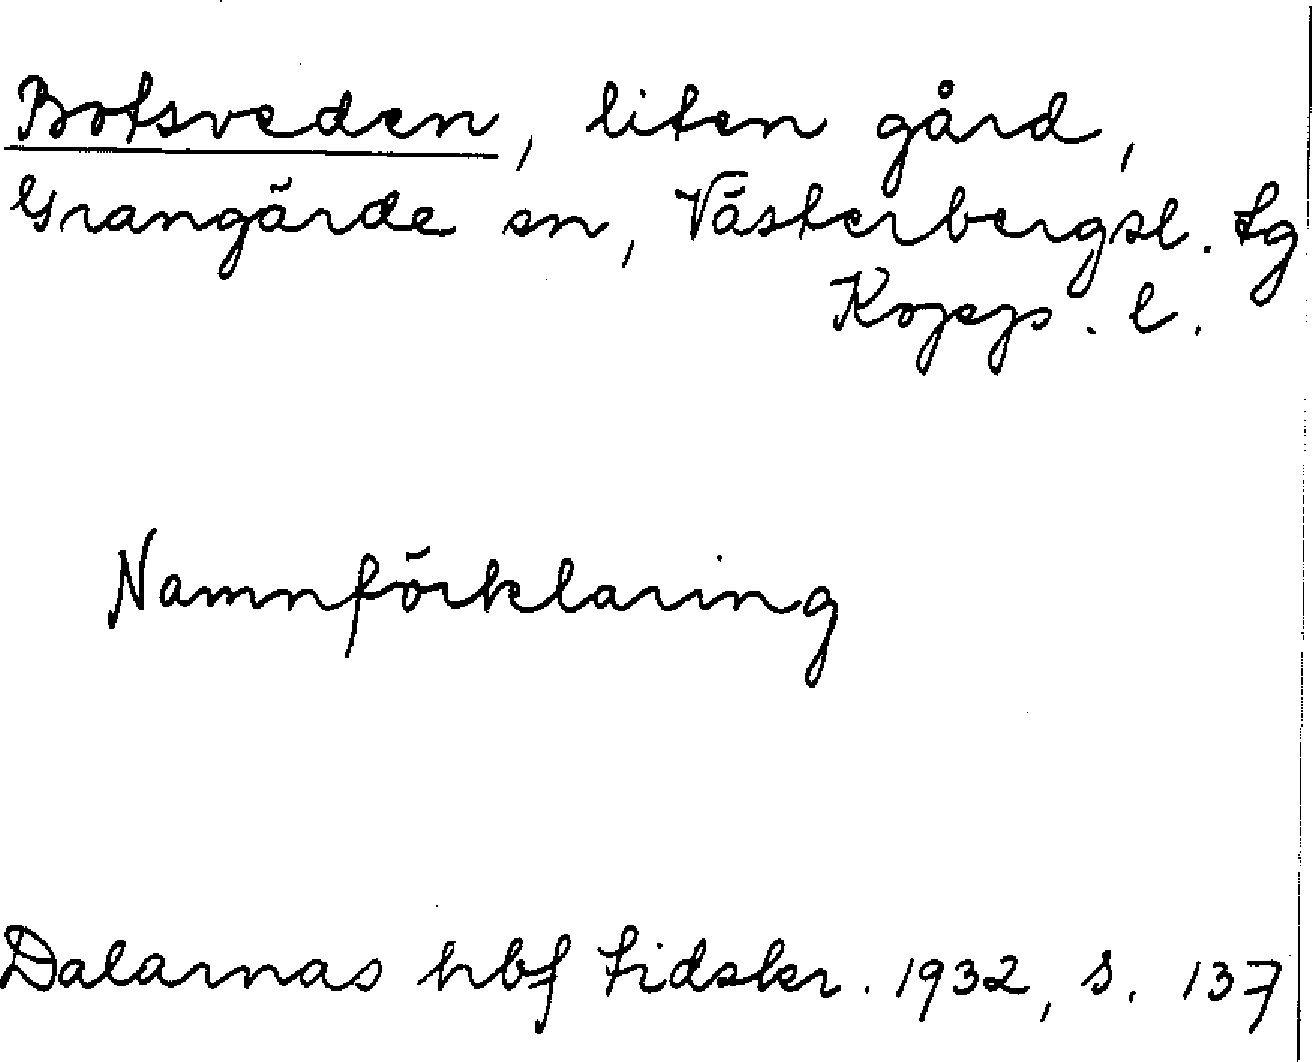 Botsveden, liten gård,
Grangärde sn, Västerbergsl. tg
Kopps. l.
Namnförklaring
Dalarnas hbf tidskr. 1932, s. 137